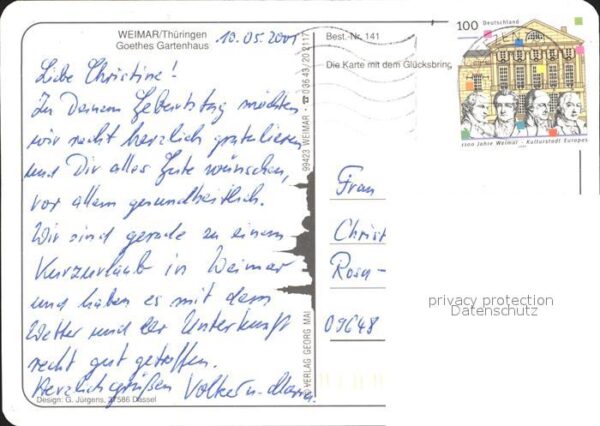 WEIMAR/Thüringen
Goethes Gartenhaus
10.05.2001
Liebe Christine!
Zu Deinem Geburtstag möchten
wir recht herzlich gratulieren
und Dir alles Gute wünschen,
vor allem gesundheitlich.
Wir sind gerade zu einem
Kurzurlaub in Weimar
und haben es mit dem
Wetter und der Unterkunft
recht gut getroffen.
Herzlichgrüßen Volker u.
Design: G. Jürgens, 37586 Dassel
VERLAG GEORG MAI
99423 WEIMAR ☎ 036 43/20 2117
Best.-Nr. 141
Die Karte mit dem Glücksbring
100 Deutschland
1100 Jahre Weimar - Kulturstadt Europas
Frau
Christ
Rosa-
09648
privacy protection
Datenschutz